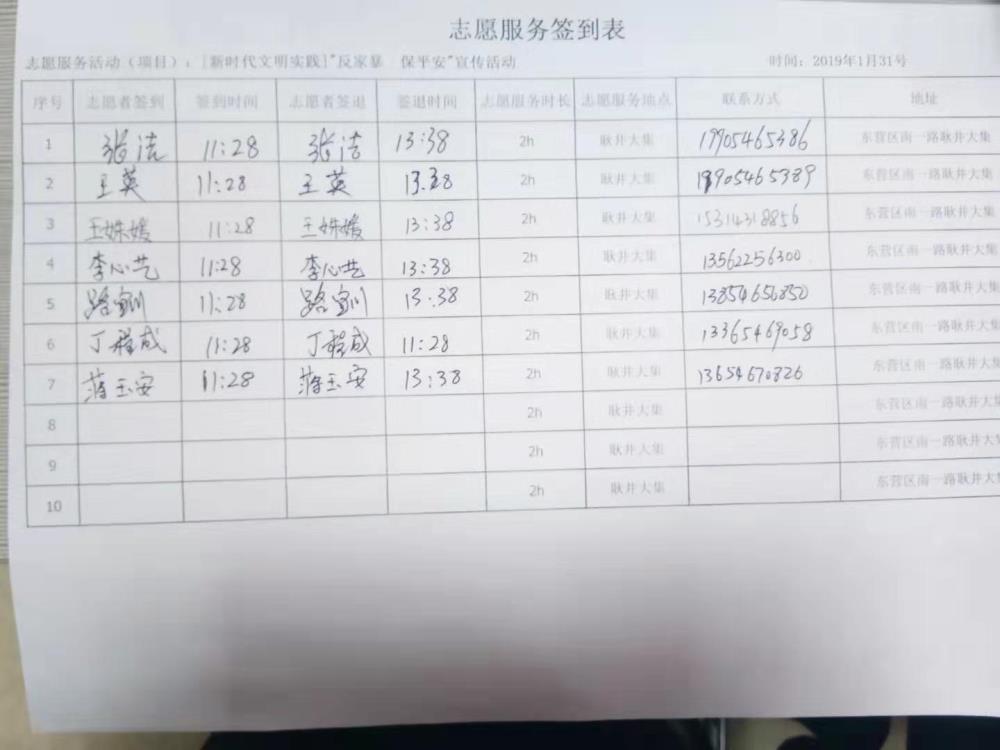 志愿服务签到表
志愿服务活动（项目）：[新时代文明实践]"反家暴 保平安"宣传活动 时间：2019年1月31号
序号 志愿者签到 签到时间 志愿者签退 签退时间 志愿服务时长 志愿服务地点 联系方式 地址
1 张洁 11:28 张洁 13:38 2h 耿井大集 19905465386 东营区南一路耿井大集
2 王英 11:28 王英 13:38 2h 耿井大集 19905465389 东营区南一路耿井大集
3 王姝媛 11:28 王姝媛 13:38 2h 耿井大集 15314318856 东营区南一路耿井大集
4 李心艺 11:28 李心艺 13:38 2h 耿井大集 13562256300 东营区南一路耿井大集
5 11:28 13:38 2h 耿井大集 13854656850 东营区南一路耿井大集
6 丁程成 11:28 丁程成 11:28 2h 耿井大集 13365469058 东营区南一路耿井大集
7 蒋玉安 11:28 蒋玉安 13:38 2h 耿井大集 13654670826 东营区南一路耿井大集
8 2h 耿井大集 东营区南一路耿井大集
9 2h 耿井大集 东营区南一路耿井大集
10 2h 耿井大集 东营区南一路耿井大集